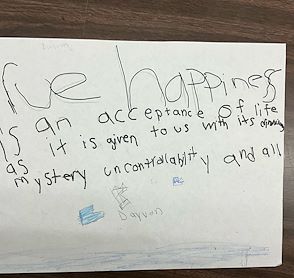 rue happiness
is an acceptance of life
as it is given to us with its
mystery uncontrollability and all
Dayvon